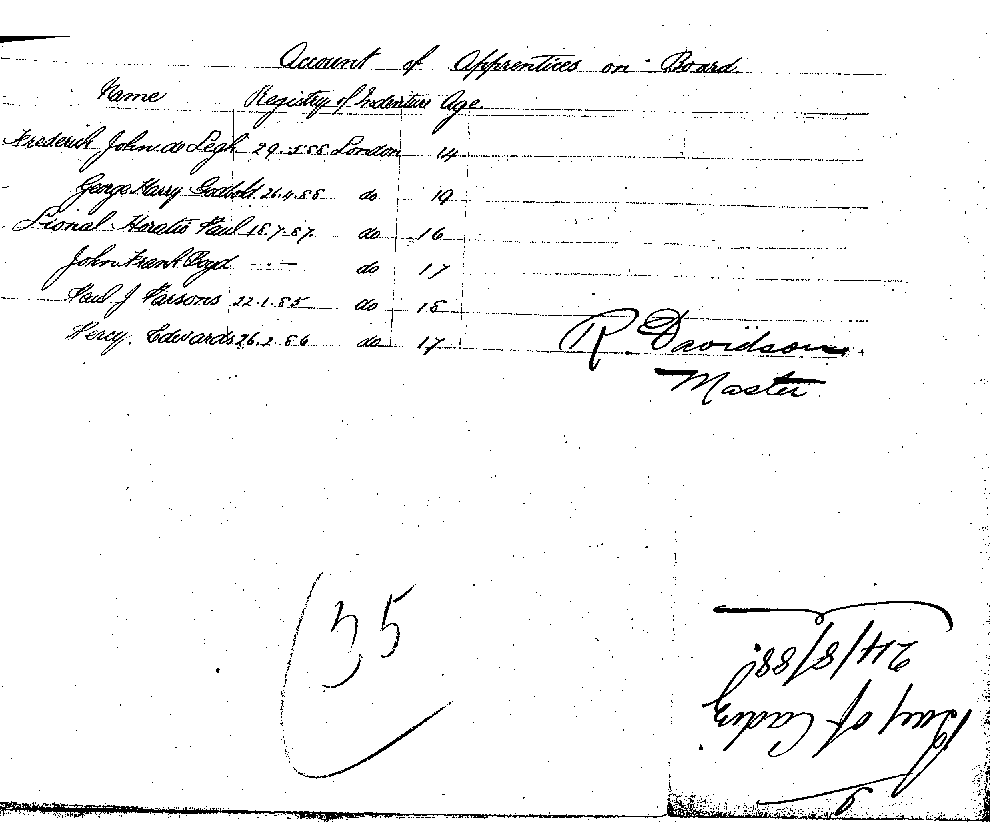 Account of Apprentices on Board
Name Registry of Indenture Age
Frederick John de Legh 29.5.88 London 14
George Harry Godbold 26.4.88 do 19
Lional Horatio Paul 18.7.87 do 16
John Frank Boyd - - do 17
Paul J Parsons 22.1.85 do 18
Percy Edwards 26.2.86 do 17
R. Davidson
Master
35
Bay of Cadiz
24/8/88.